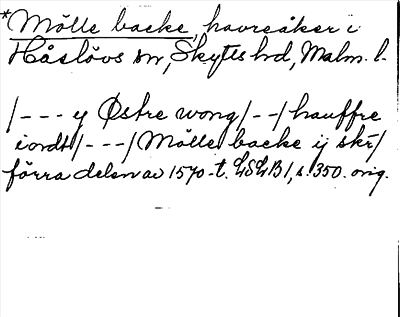 *Mölle backe, havreåker i
Håslövs sn, Skytts hd, Malm. l.
/--- y Østre wong/--/hauffre
iordt/---/Mölle backe ij skr/
förra delen av 1570-t. LSLB1, s. 350. orig.